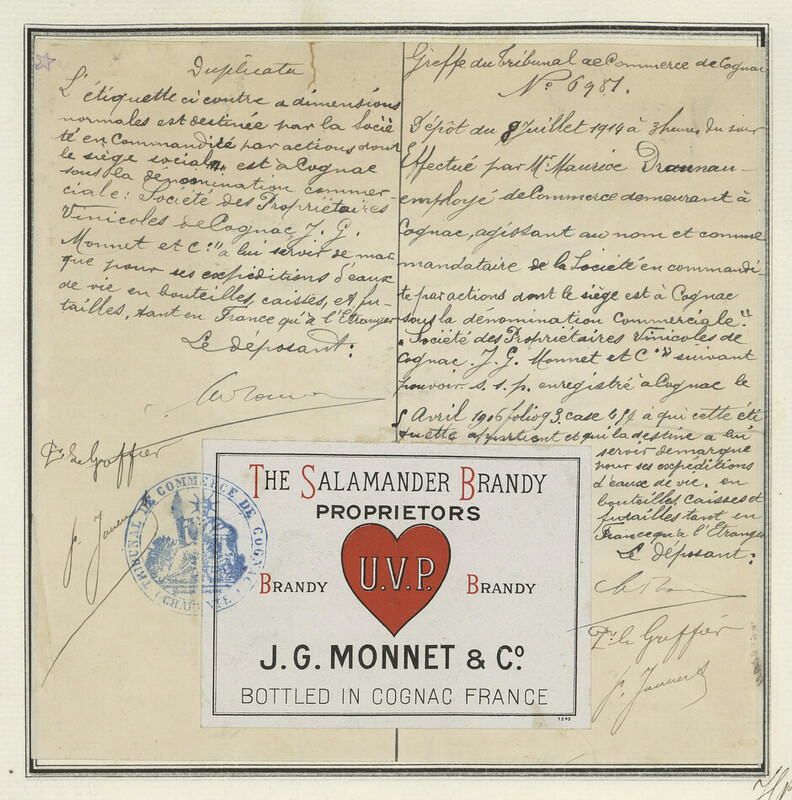 Duplicata
L'étiquette ci contre a dimensions
normales est destinée par la Socié
té en Commandite par actions dont
le siège social est à Cognac
sous la dénomination commer
ciale: Société des Propriétaires
Vinicoles de Cognac J. G.
Monnet et Cie à lui servir de mar
que pour ses expéditions d'eaux
de vie en bouteilles, caisses, et fu-
tailles, tant en France qu'à l'Etranger
Le déposant:
Pr le Greffier
Greffe du Tribunal de Commerce de Cognac
No 6981.
Dépôt du 8 Juillet 1914 à 3 heures du soir
Effectué par Mr Maurice
employé de Commerce demeurant à
Cognac, agissant au nom et comme
mandataire de la Société en commandi-
te par actions dont le siège est à Cognac
sous la dénomination Commerciale "
Société des Propriétaires Vinicoles de
Cognac. J. G. Monnet et Cie suivant
pouvoir s. s. p. enregistré à Cognac le
Avril 1906 folio 93 case à qui cette éti
quette appartient et qui la destine a lui
servir de marque
pour ses expéditions
d'eaux de vie, en
bouteilles caisses et
futailles tant en
France qu'à l'Etranger
Le déposant:
Pr le Greffier
TRIBUNAL DE COMMERCE DE COGNAC
(CHARENTE)
THE SALAMANDER BRANDY
PROPRIETORS
U.V.P.
BRANDY BRANDY
J. G. MONNET & Co
BOTTLED IN COGNAC FRANCE